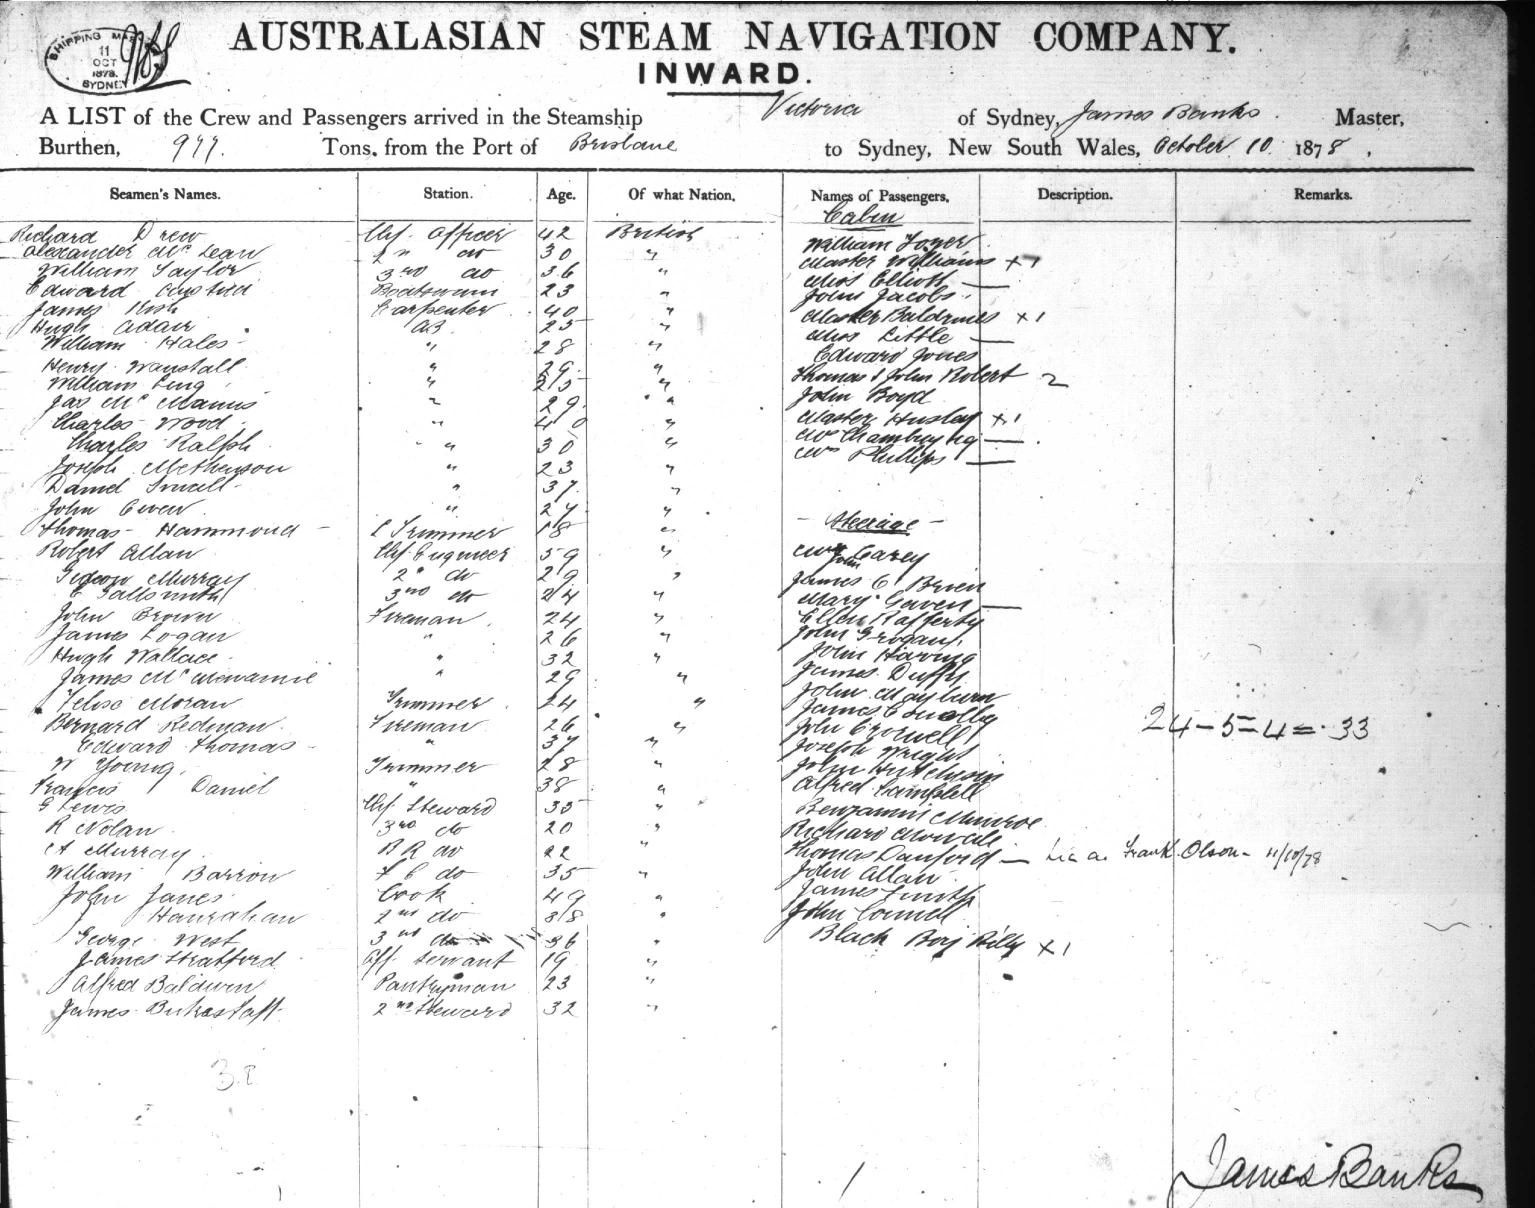 SHIPPING MASTER
11
OCT
1878.
SYDNEY
AUSTRALASIAN STEAM NAVIGATION COMPANY.
INWARD.
A LIST of the Crew and Passengers arrived in the Steamship Victoria of Sydney, James Banks Master,
Burthen, 977. Tons, from the Port of Brisbane to Sydney, New South Wales, October 10 1878,
Seamen's Names. Station. Age. Of what Nation. Names of Passengers. Description. Remarks.
Cabin
Richard Drew Chf. Officer 42 British
Alexander McLean 2" do 30 "
William Taylor 3rd do 36 "
Edward 23 "
James Carpenter 40 "
Hugh Adair AB 25 "
William Hales " 28 "
Henry Wanstall " 29 "
William Ling " 25 "
Jas McManus " 29 "
Charles Wood " 40 "
Charles Ralph " 30 "
Joseph " 23 "
Daniel Small " 37 "
John Owen " 27 "
Thomas Hammond Trimmer 18 "
Robert Allan Chf Engineer 59 "
Gideon Murray 2" do 29 "
3rd do 24 "
John Brown Fireman 24 "
James Logan " 26 "
Hugh Wallace " 32 "
James " 29 "
Felix Moran Trimmer 24 "
Bernard Redman Fireman 26 "
Edward Thomas " 37 "
W Young Trimmer 28 "
Francis Daniel " 38 "
G Lewis Chf Steward 35 "
R Nolan 3rd do 20 "
A Murray B R do 22 "
William Barron F C do 35 "
John James Cook 49 "
Hanrahan 2nd do 38 "
George West 3rd do 36 "
James Stratford Off Servant 19 "
Alfred Baldwin Pantryman 23 "
James 2nd Steward 32 "
38
William
Master Williams x 1
Miss Elliott —
John Jacobs
Master x 1
Miss Little —
Edward Jones
Thomas & John Robert 2
John Boyd
Master x 1
Mrs —
Mrs Phillips —
- Steerage -
John Carey
James O Brien
Mary Gaven —
Ellen Rafferty
John Grogan
John
James Duffy
John Mayburn
James
John
Joseph Wright
John Hutchison
Alfred Campbell
Benjamin Munroe
Richard
Thomas Danford — Frank Olson - 11/10/78
John Allan
James Smith
John Connell
Black Boy Billy x 1
24 - 5 = 4 = 33
James Banks